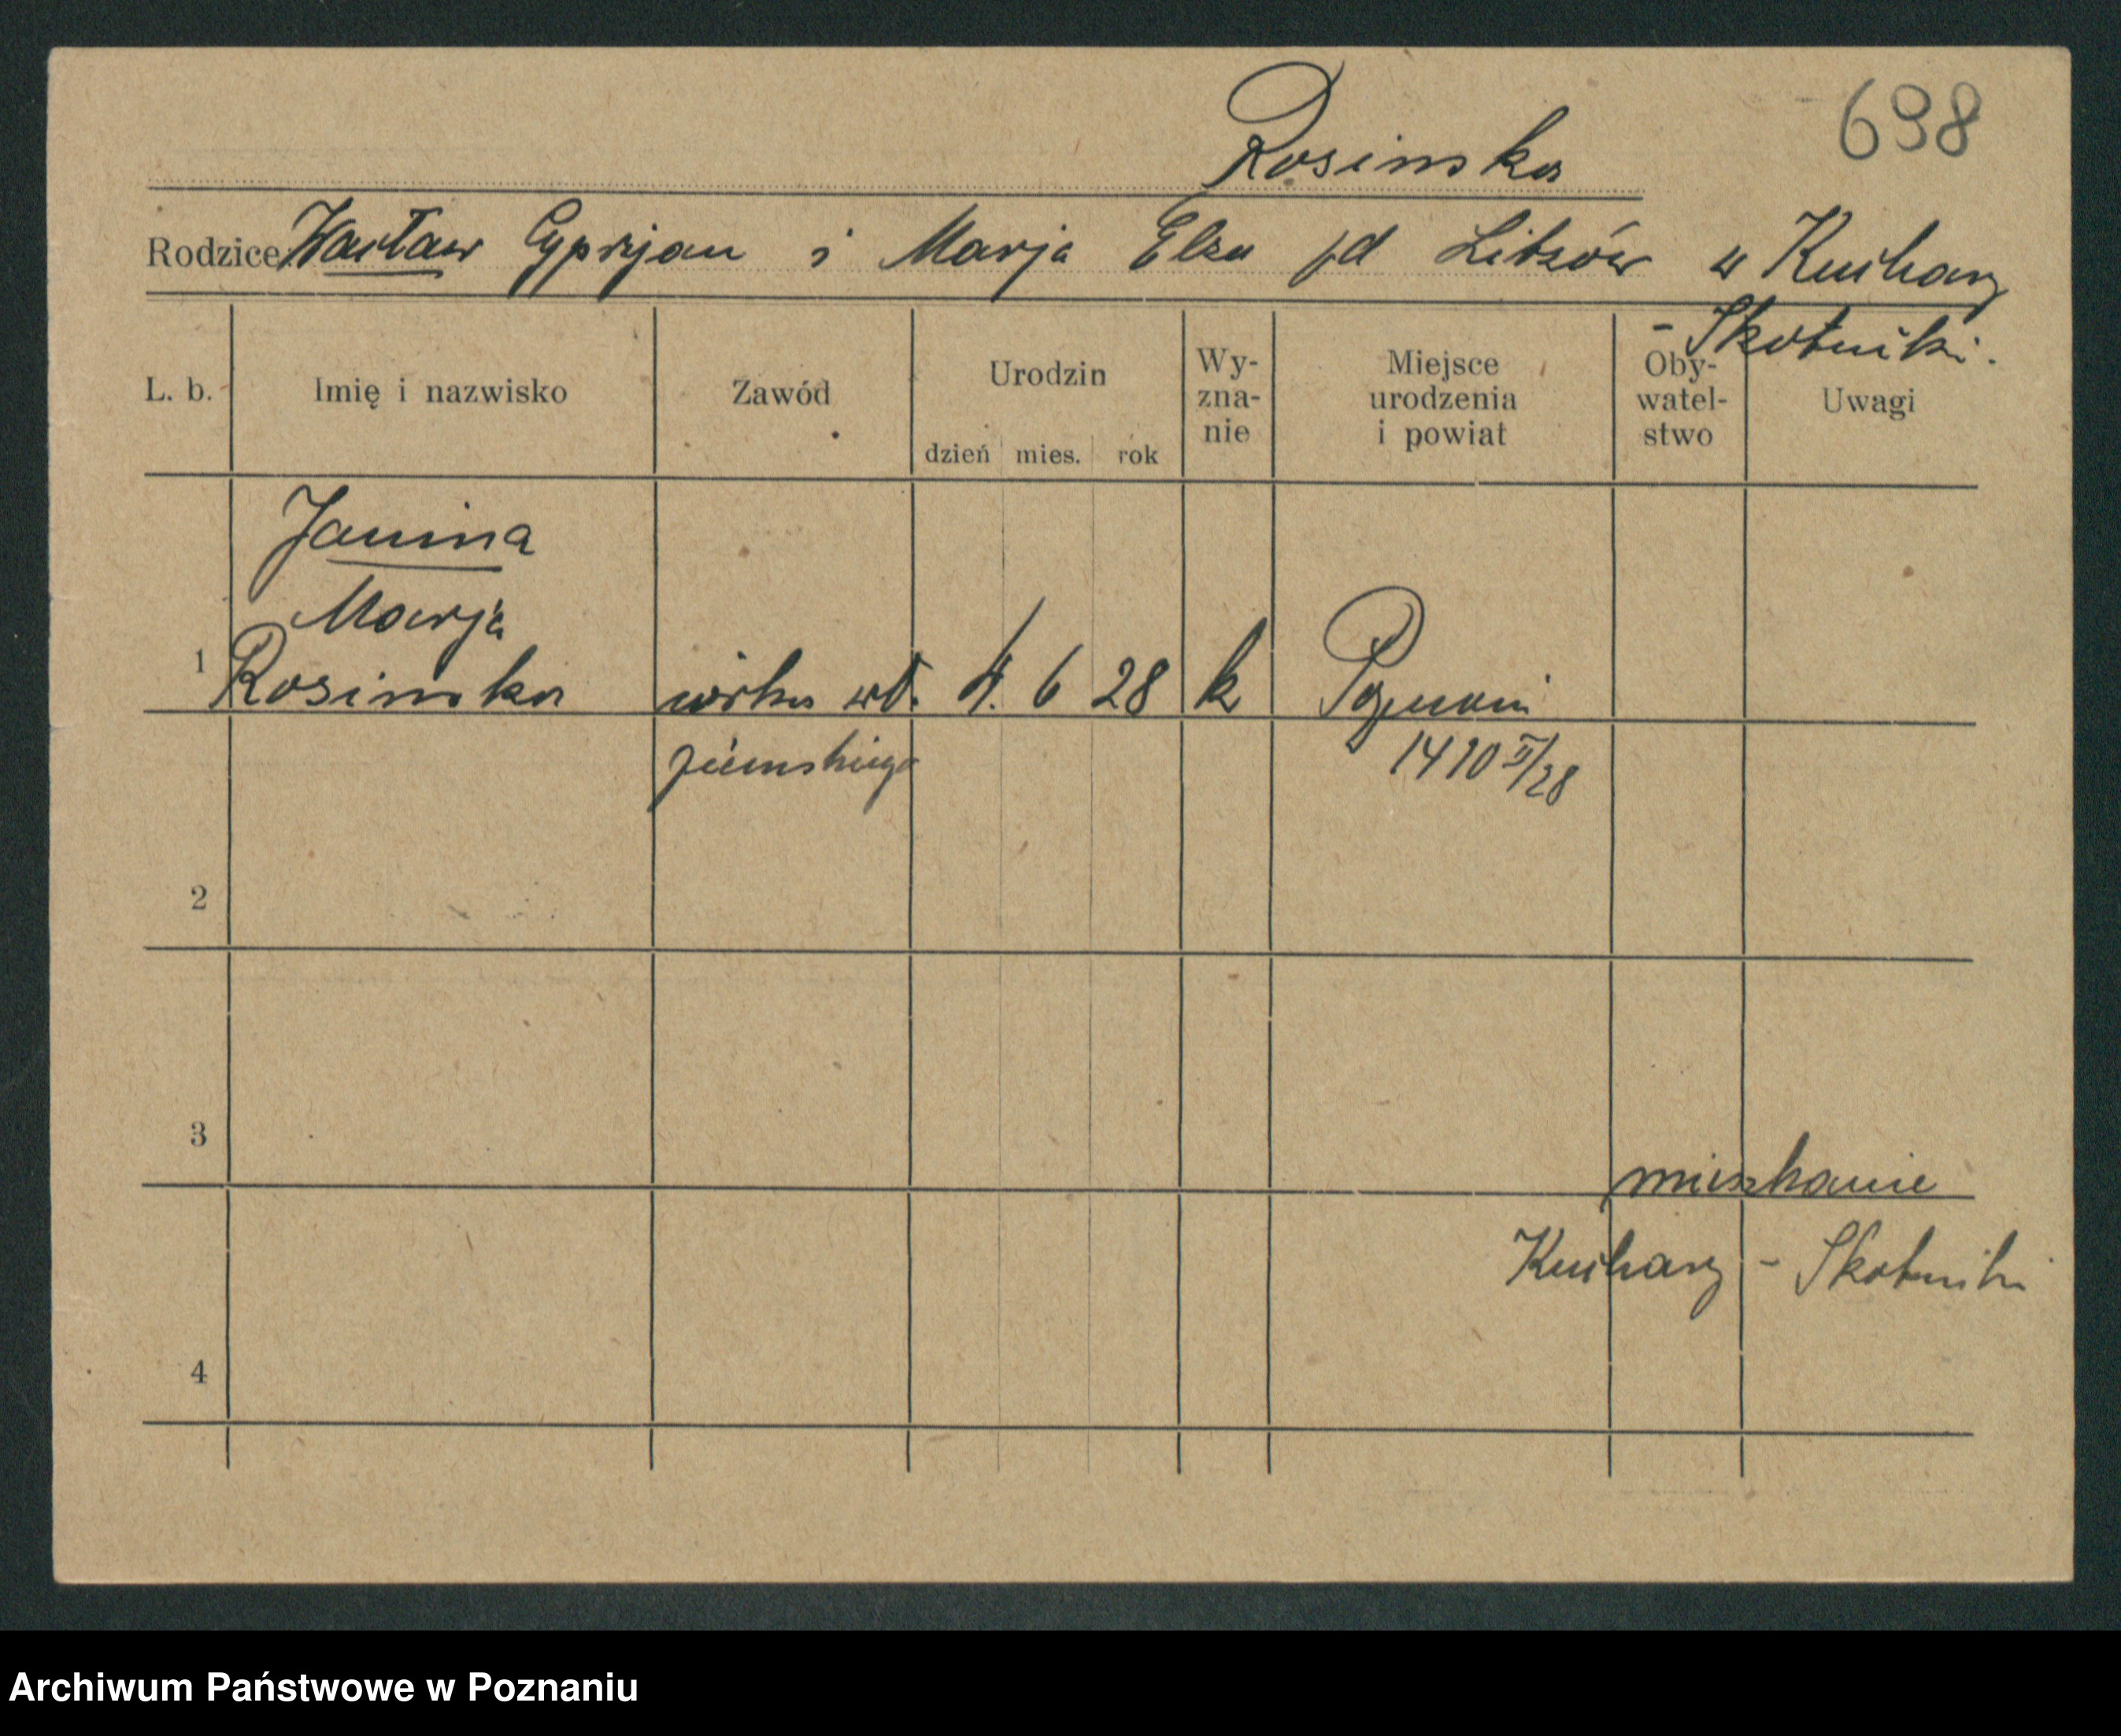 698
Rosinska
Rodzice: Wacław Cyprjan i Marja Elza z d Litzów w Kuchary
- Skotniki.
L. b. Imię i nazwisko Zawód Urodzin dzień mies. rok Wy-zna-nie Miejsce urodzenia i powiat Oby-watel-stwo Uwagi
Janina
Marja
1 Rosinska córka wł. 4. 6 28 k Poznań
ziemskiego 1410 II/28
2
3
mieszkanie
Kuchary - Skotniki
4
Archiwum Państwowe w Poznaniu